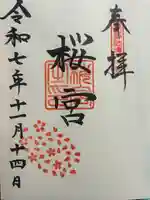 奉拝
桜宮
令和七年十一月十四日